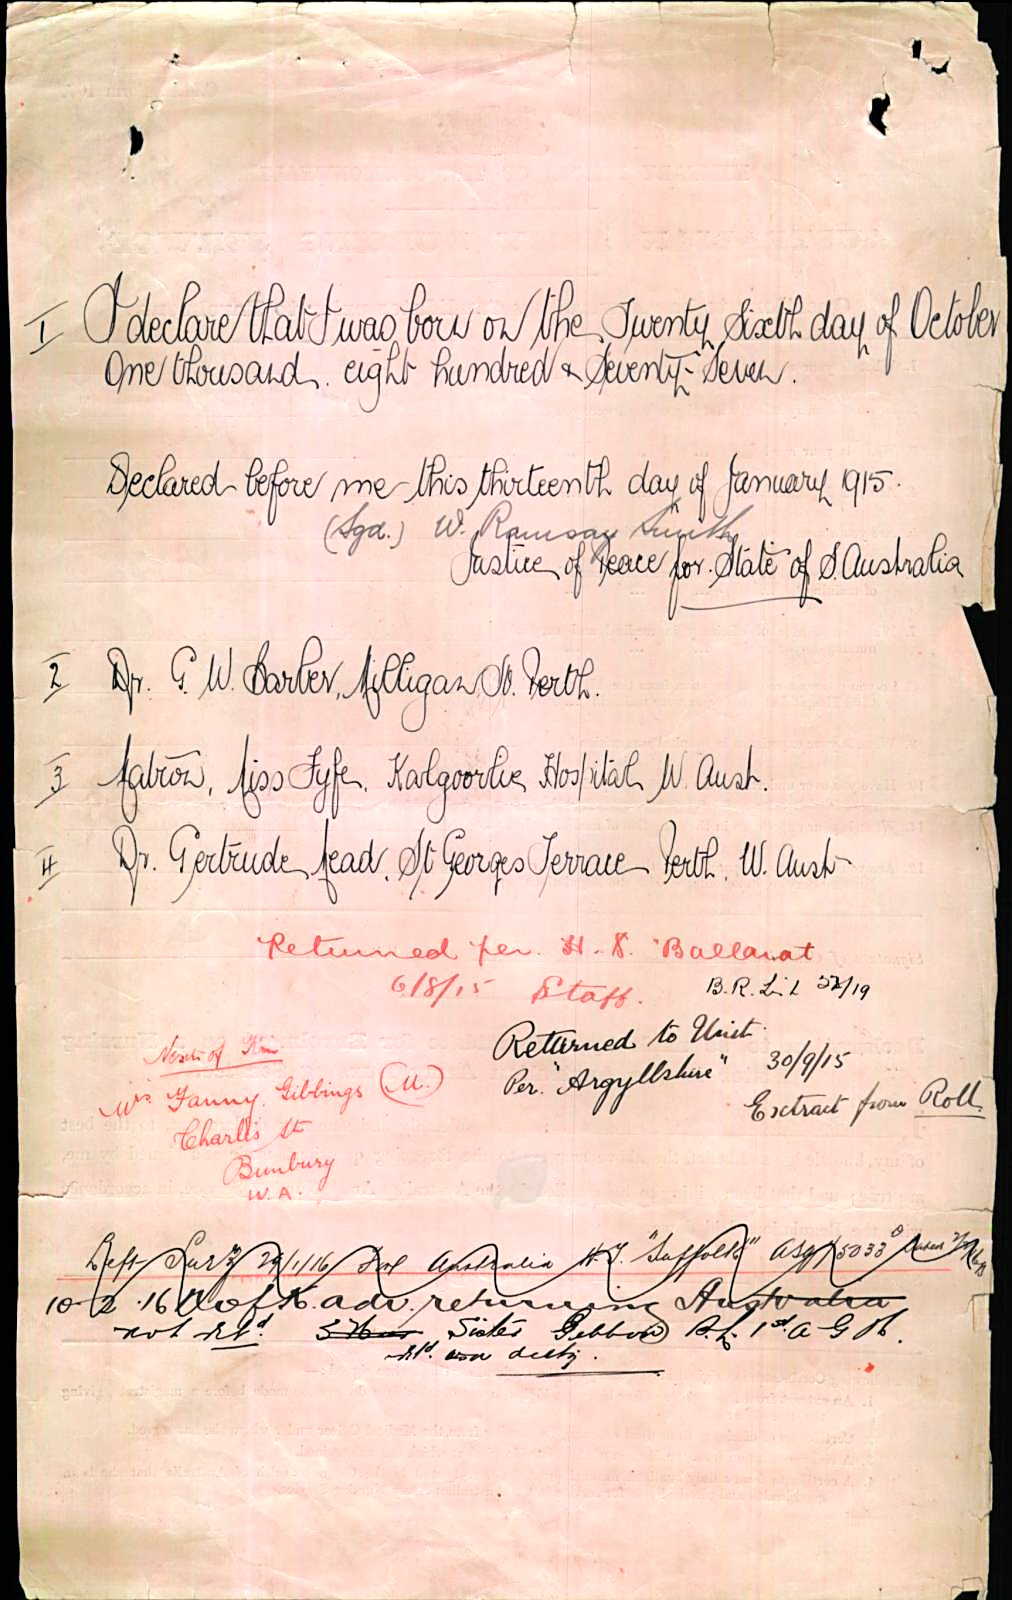 1 I declare that I was born on the Twenty Sixth day of October
One thousand eight hundred & Seventy-Seven.
Declared before me this thirteenth day of January 1915.
(Sgd.) W. Ramsay Smith
Justice of Peace for State of S. Australia
2 Dr. G. W. Barber, Milligan St. Perth.
3 Matron, Miss Fyfe, Kalgoorlie Hospital W. Aust.
4 Dr. Gertrude Mead, St Georges Terrace Perth, W. Aust
Returned per H.S. Ballarat
6/8/15 Staff.
B.R. 52/19
Returned to Unit
Per "Argyllshire" 30/9/15
Extract from Roll
Next of Kin
Mrs Fanny Gibbings (M.)
Charles St
Bunbury
W.A.
Left Suez 29/1/16 for Australia H.T. "Suffolk"
10-2-16 of K. adv. returning Australia
not Sister 1st A G H.
duty.